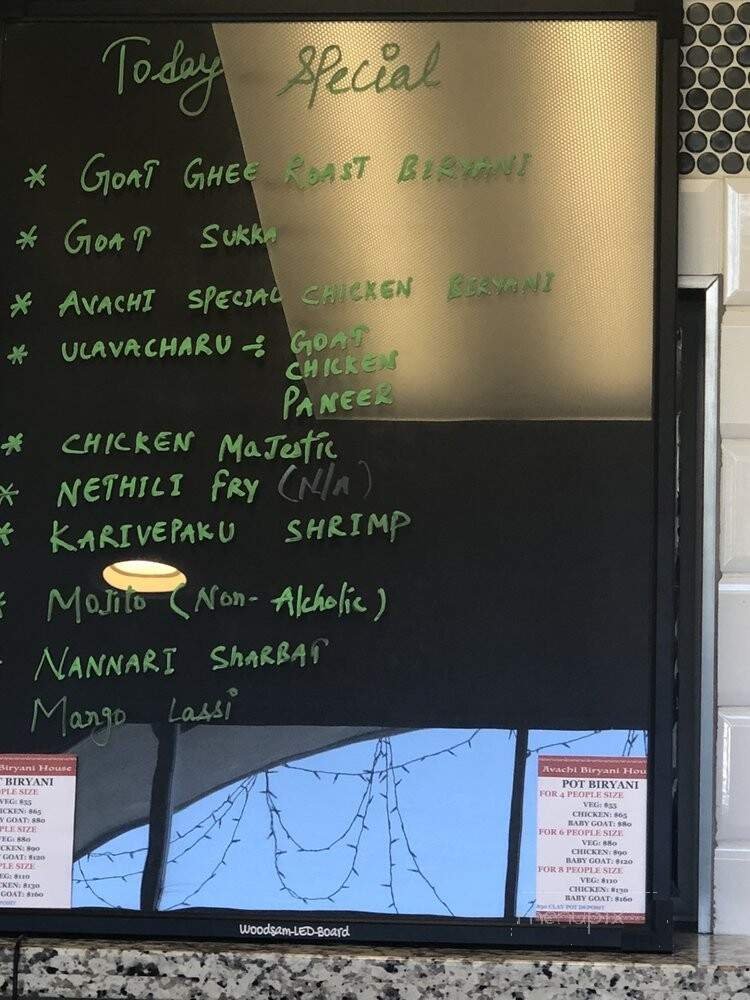 Today Special
* GOAT GHEE ROAST BIRYANI
* GOAT SUKKA
* AVACHI SPECIAL CHICKEN BIRYANI
* ULAVACHARU ÷ GOAT
CHICKEN
PANEER
* CHICKEN MaJestic
* NETHILI FRY (N/A)
* KARIVEPAKU SHRIMP
* MoJito (Non-Alcholic)
- NANNARI SHARBAT
Mango Lassi
Biryani House
T BIRYANI
PLE SIZE
VEG: $55
ICKEN: $65
Y GOAT: $80
PLE SIZE
VEG: $80
CKEN: $90
GOAT: $120
PLE SIZE
EG: $110
CKEN: $130
GOAT: $160
POSIT
Avachi Biryani Hou
POT BIRYANI
FOR 4 PEOPLE SIZE
VEG: $55
CHICKEN: $65
BABY GOAT: $80
FOR 6 PEOPLE SIZE
VEG: $80
CHICKEN: $90
BABY GOAT: $120
FOR 8 PEOPLE SIZE
VEG: $110
CHICKEN: $130
BABY GOAT: $160
CLAY POT DEPOSIT
Woodsam-LED-Board
menupix